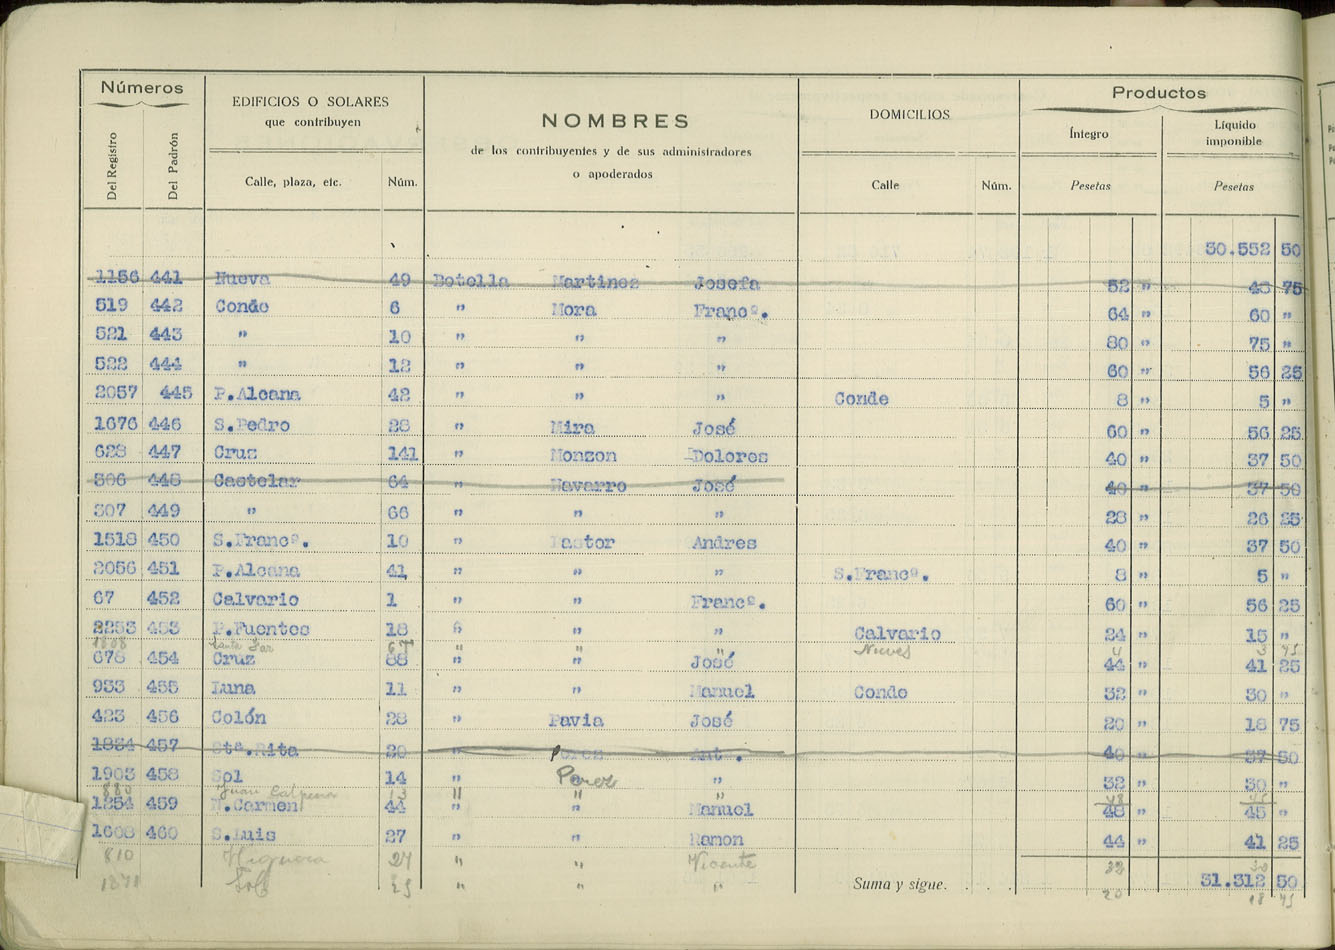 Números
EDIFICIOS O SOLARES
que contribuyen
NOMBRES
de los contribuyentes y de sus administradores
o apoderados
DOMICILIOS
Productos
Íntegro
Líquido
imponible
Del Registro
Del Padrón
Calle, plaza, etc. Núm.
Calle Núm.
Pesetas Pesetas
30.552 50
1156 441 Nueva 49 Botella Martinez Josefa 52 " 48 75
519 442 Conde 6 " Mora Francº. 64 " 60 "
521 443 " 10 " " " 80 " 75 "
522 444 " 12 " " " 60 " 56 25
2057 445 P.Alcana 42 " " " Conde 8 " 5 "
1676 446 S.Pedro 28 " Mira José 60 " 56 25
628 447 Cruz 141 " Monzon Dolores 40 " 37 50
306 448 Castelar 64 " Navarro José 40 " 37 50
307 449 " 66 " " " 28 " 26 25
1518 450 S.Francº. 10 " Pastor Andres 40 " 37 50
2056 451 P.Alcana 41 " " " S.Francº. 8 " 5 "
67 452 Calvario 1 " " Francº. 60 " 56 25
2253 453 P.Fuentes 18 " " " Calvario 24 " 15 "
1808 67 " " " Nieves 4 3 75
678 454 Cruz 88 " " José 44 " 41 25
933 455 Luna 11 " " Manuel Conde 32 " 30 "
423 456 Colón 28 " Pavia José 20 " 18 75
1834 457 Stª.Rita 20 " Perez Ant . 40 " 37 50
1903 458 Sol 14 " Perez " 32 " 30 "
880 Juan Calpena 13 " " " 48 45
1254 459 N.Carmen 44 " " Manuel 48 " 45 "
1608 460 S.Luis 27 " " Ramon 44 " 41 25
810 Higuera 24 " " Vicente 32 30
1871 Sol 25 " " " 20 18 75
Suma y sigue. . . . 31.312 50